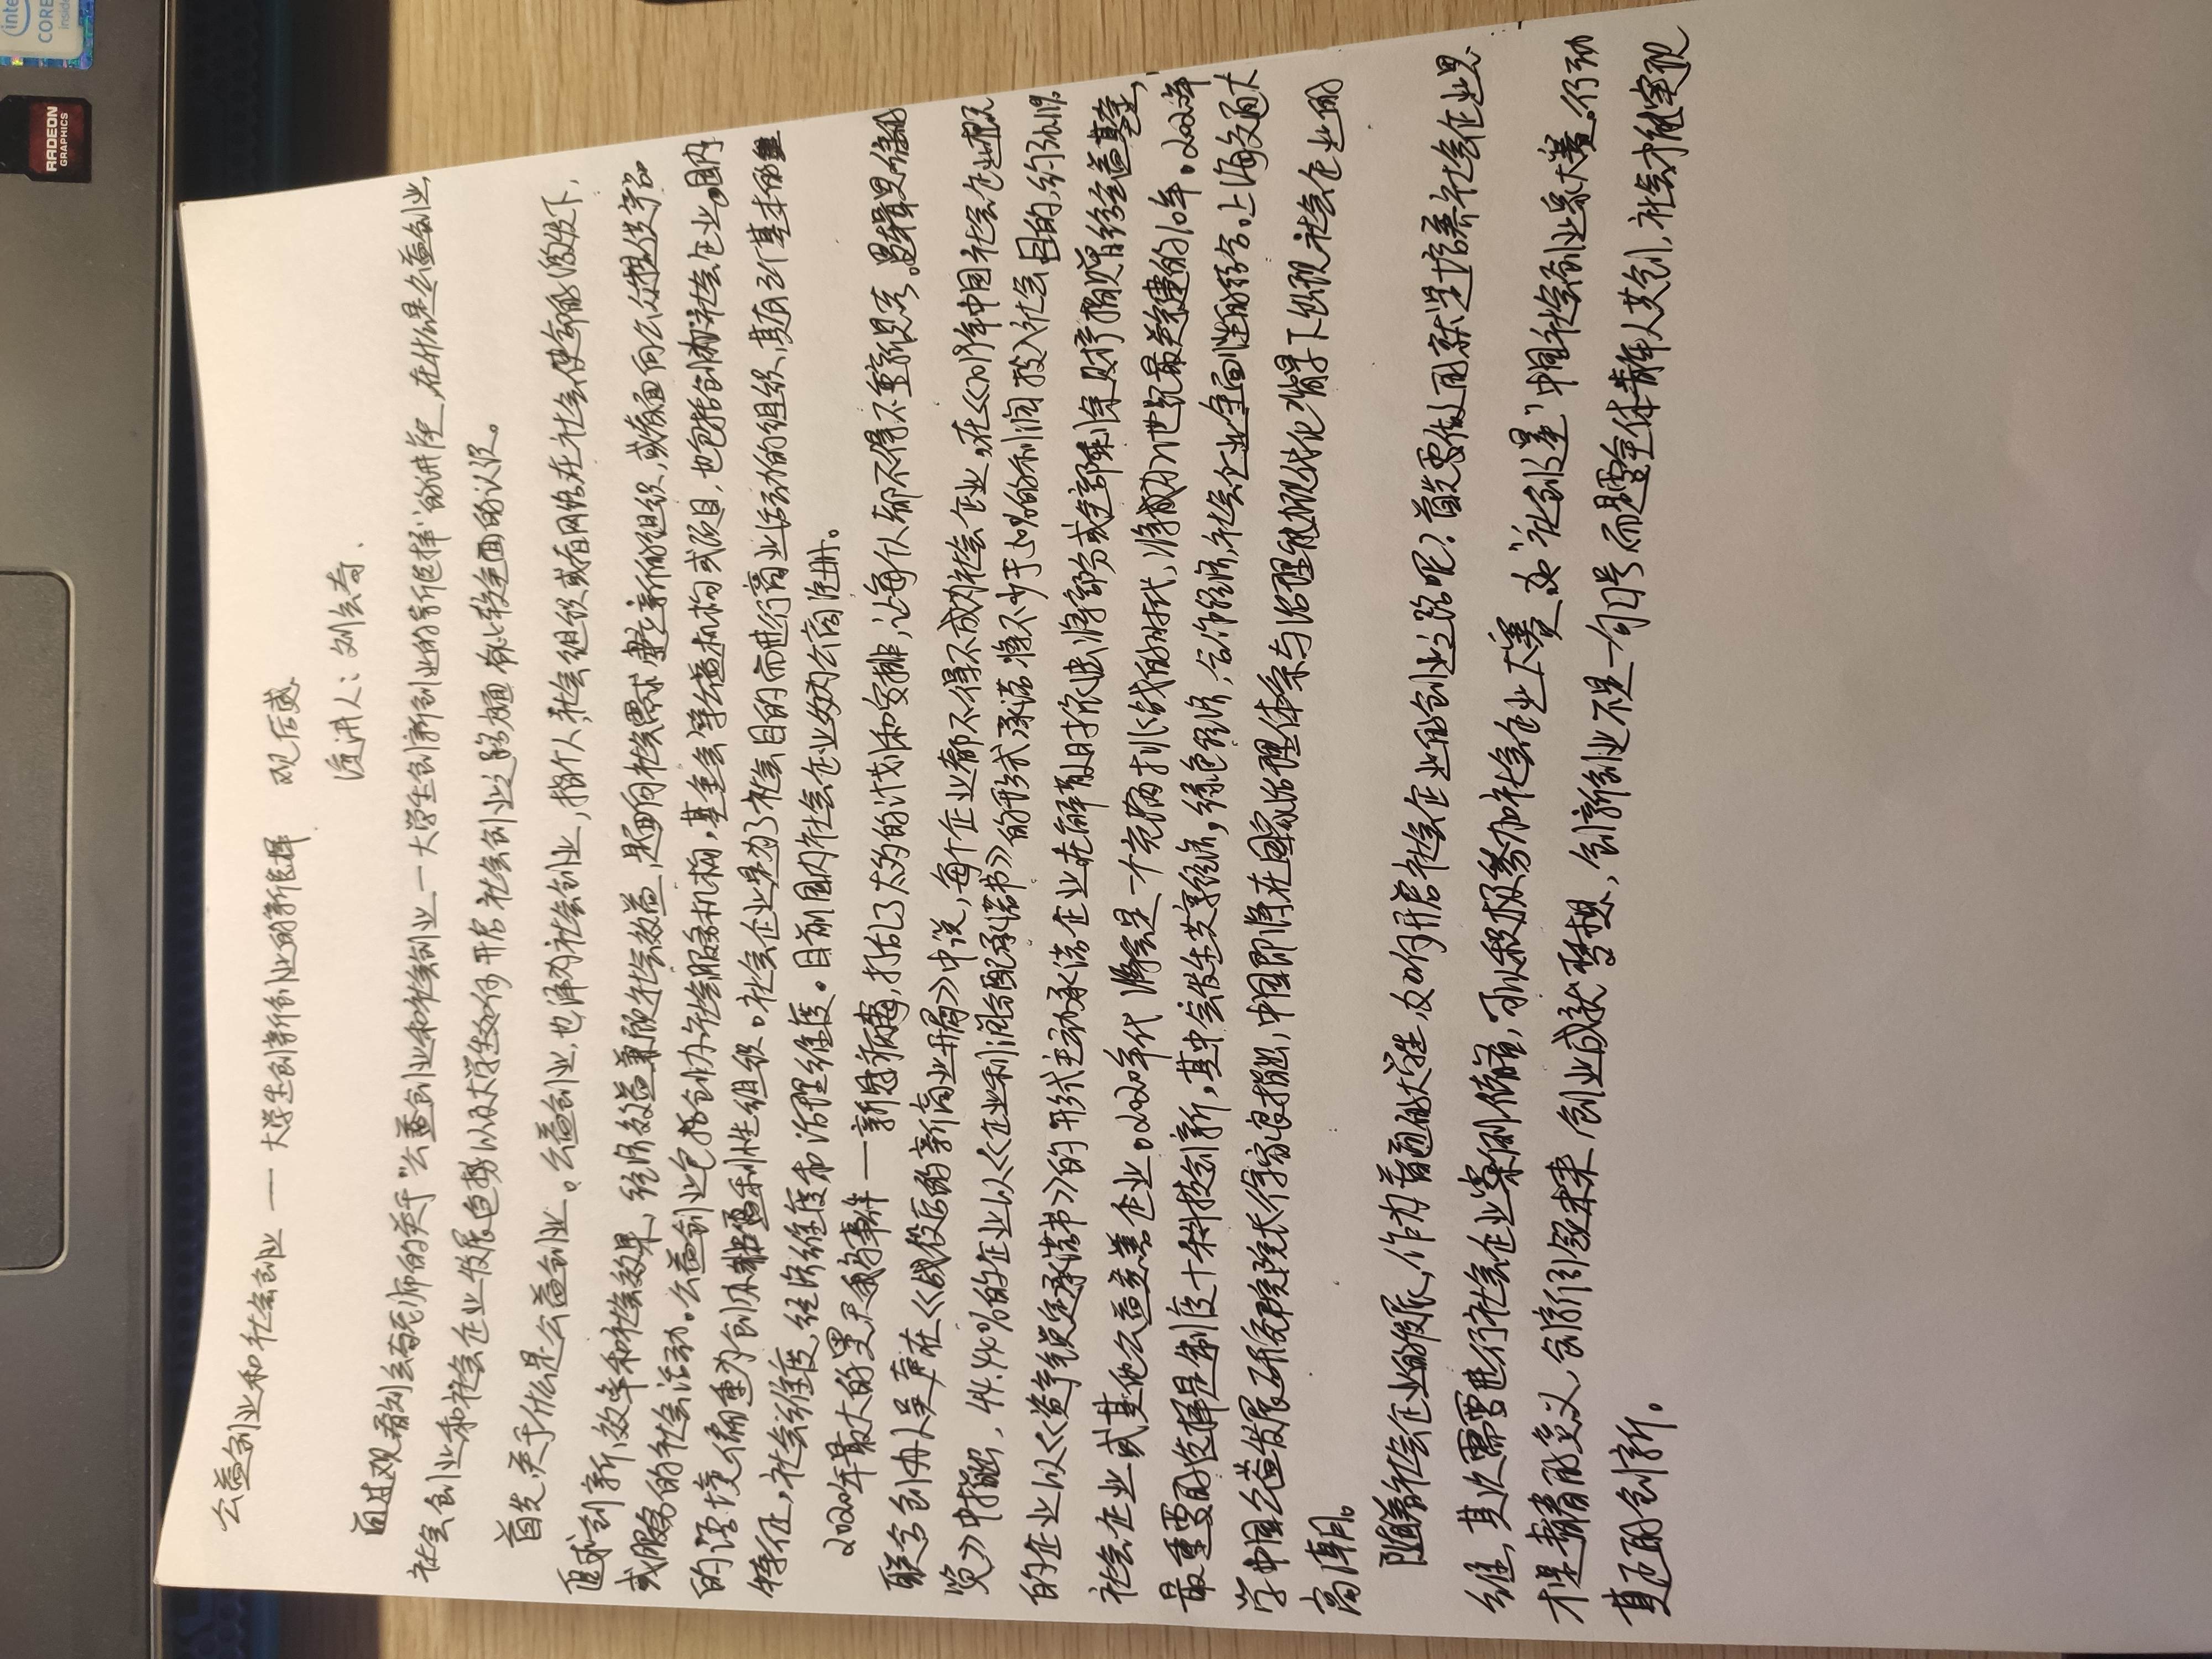 RADEON
GRAPHICS
inte
CORE
inside
公益创业和社会创业 — 大学生创新创业的新选择 观后感
演讲人：刘会奇.
通过观看刘会奇老师的关于"公益创业和社会创业—大学生创新创业的新选择"的讲座,在什么是公益创业,
社会创业和社会企业发展趋势以及大学生如何开启社会创业之路方面有比较全面的认识。
首先,关于什么是公益创业。公益创业,也译为社会创业,指个人,社会组织或者网络在社会使命的激发下,
追求创新、效率和社会效果,经济效益兼顾社会效益,是面向社会需求建立新的组织,或者面向公众提供产品
或服务的社会活动。公益创业包括创办社会服务机构,基金会等公益机构或项目,也包括创办社会企业。国内
的语境偏重为创办非营利性组织。社会企业是为了社会目的而进行商业活动的组织,其有三个基本的
特征,社会维度,经济维度和治理维度。目前国内社会企业多为公商注册。
2020年最大的黑天鹅事件—新冠病毒,打乱了太多的计划和安排,让每个人都不得不重新思考。逻辑思维的
联合创办人吴声在《战役后的新商业开局》中说,每个企业都不得不成为社会企业,在《2019年中国社会企业概
览》中指出,44.44%的企业以《企业利润分配承诺书》的形式承诺将不少于50%的利润投入社会目的,约36.11%
的企业以《资产锁定承诺书》的形式主动承诺企业在解散时依法将部分或全部剩余财产捐赠给公益基金,
社会企业或其他公益慈善企业。2020年代将会是一个充满挑战的时代,将成为21世纪最关键的10年。2020年
最重要的选择是制度+科技创新,其中会发生共享经济,绿色经济,合作经济,社会企业全面性的结合。上海交通大
学中国公益发展研究院院长徐家良指出,中国即将在国家治理体系与治理能力现代化背景下出现社会企业的
高潮。
随着社会企业的发展,作为普通的大学生,如何开启社会企业的创业之路呢?首先要做的就是培养社会企业思
维,其次需要进行社会企业案例储备,可以积极参加社会企业大赛,如"社创之星"中国社会创业家大赛。行动
才是青春的意义,创新引领未来,创业成就梦想,创新创业不是一句口号而是要全体青年人共创,社会才能实现
真正的创新。